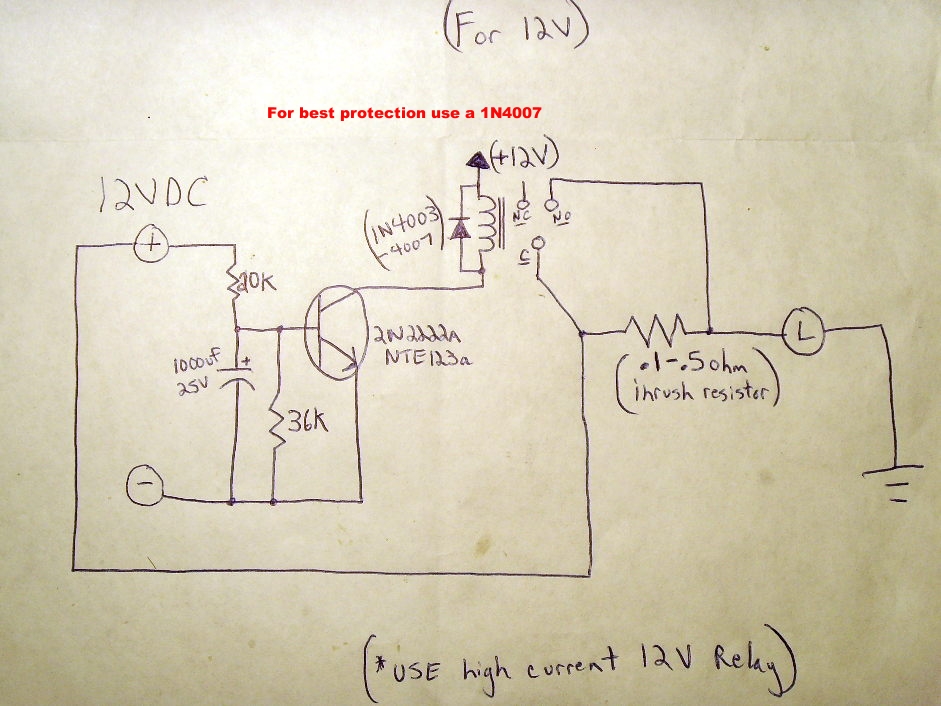 (For 12V)
For best protection use a 1N4007
(+12V)
12VDC
(1N4003
-4007)
NC
NO
C
+
20K
1000uf
25V
+
2N2222A
NTE123a
L
(.1-.5 ohm
inrush resistor)
36K
-
(*USE high current 12V Relay)